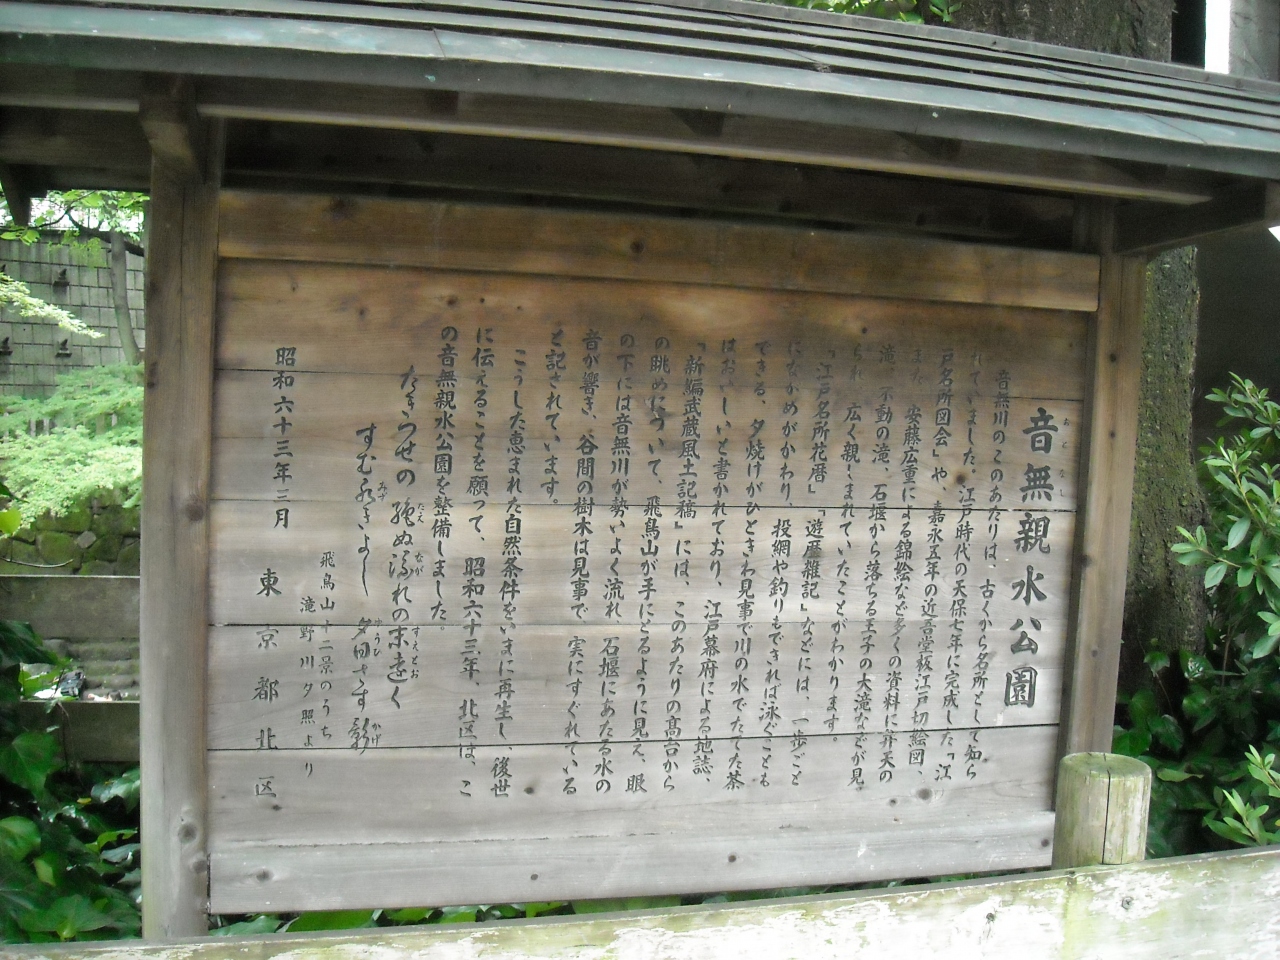 音無親水公園
音無川のこのあたりは、古くから名所として知ら
れていました。江戸時代の天保七年に完成した「江
戸名所図会」や、嘉永五年の近吾堂板江戸切絵図、
また、安藤広重による錦絵など多くの資料に弁天の
滝、不動の滝、石堰から落ちる王子の大滝などが見
られ、広く親しまれていたことがわかります。
「江戸名所花暦」「遊歴雑記」などには、一歩ごと
にながめがかわり、投網や釣りもできれば泳ぐことも
できる、夕焼けがひときわ見事で川の水でたてた茶
はおいしいと書かれており、江戸幕府による地誌、
「新編武蔵風土記稿」には、このあたりの高台から
の眺めについて、飛鳥山が手にとるように見え、眼
の下には音無川が勢いよく流れ、石堰にあたる水の
音が響き、谷間の樹木は見事で、実にすぐれている
と記されています。
こうした恵まれた自然条件をいまに再生し、後世
に伝えることを願って、昭和六十三年、北区は、こ
の音無親水公園を整備しました。
たきつせの 絶ぬ流れの末遠く
すむ水きよし 夕日さす影
飛鳥山十二景のうち
滝野川夕照より
昭和六十三年三月
東京都北区